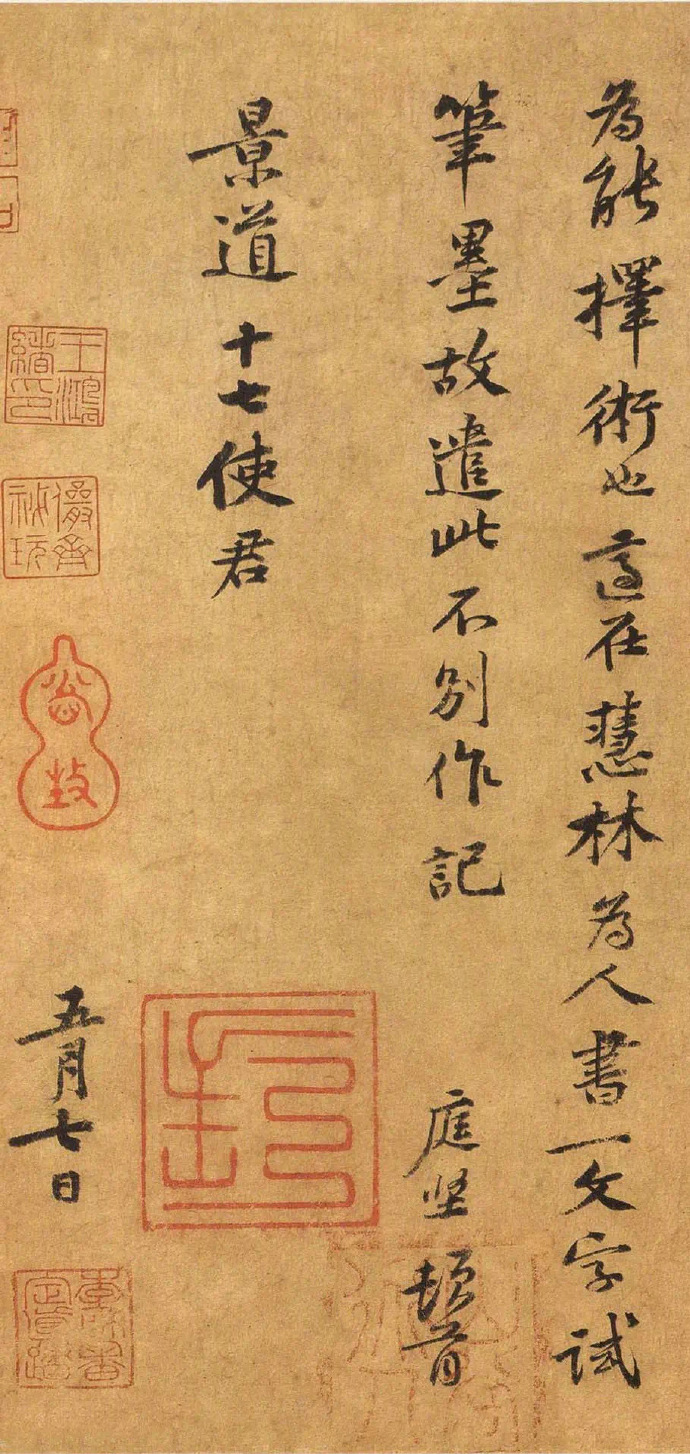 為能擇術也適在慧林為人書一文字試
筆墨故遣此不別作記
庭坚頓首
景道十七使君
五月七日
王鴻緒印
儼齋秘玩